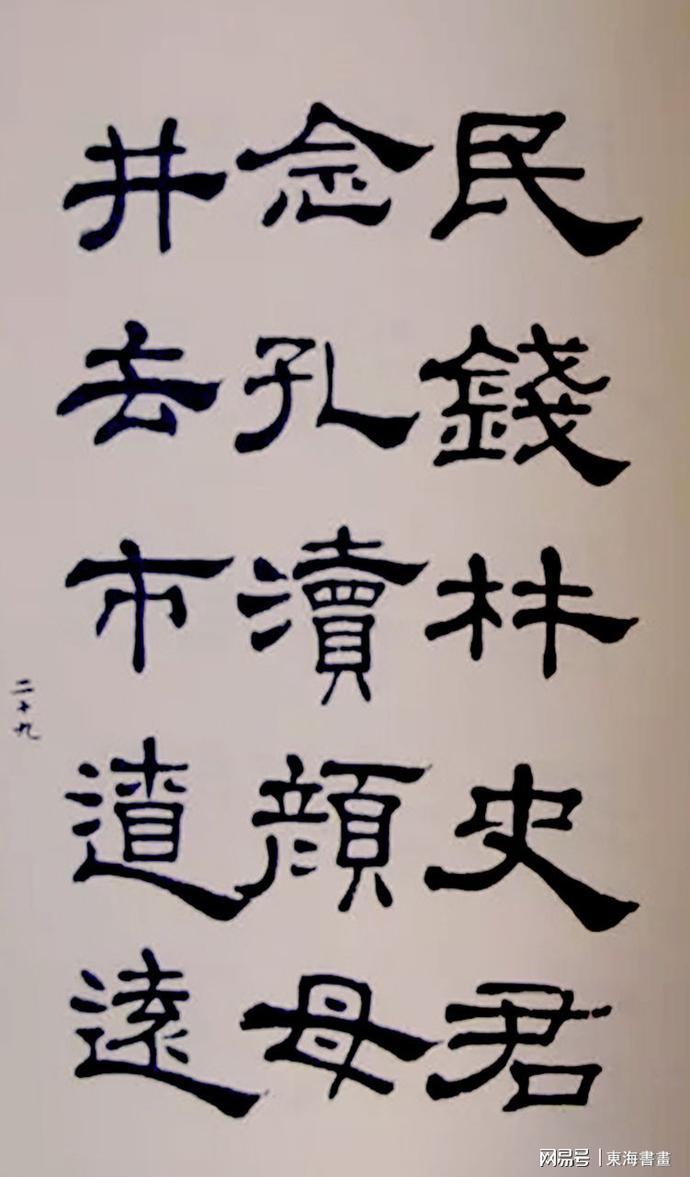 民錢材史君
念孔瀆顏母
井去市遼遠
二十九
网易号 | 東海書畫